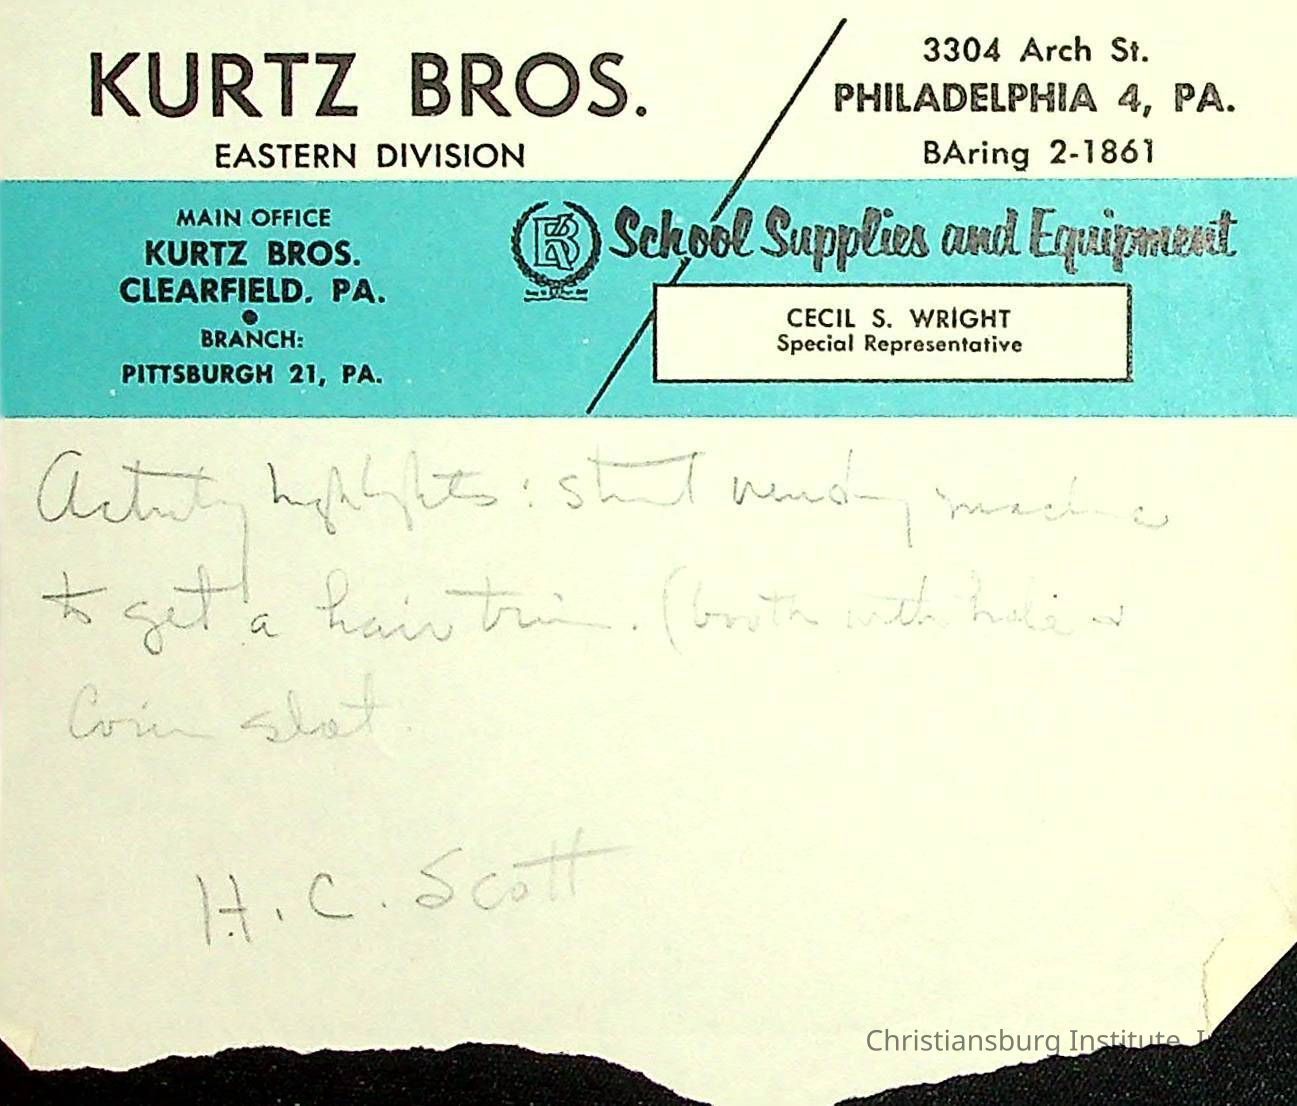 KURTZ BROS.
EASTERN DIVISION
3304 Arch St.
PHILADELPHIA 4, PA.
BAring 2-1861
MAIN OFFICE
KURTZ BROS.
CLEARFIELD, PA.
BRANCH:
PITTSBURGH 21, PA.
KB School Supplies and Equipment
CECIL S. WRIGHT
Special Representative
Activity highlights: vending machine
to get a hair trim. (booth with hole &
Coin slot.
H. C. Scott
Christiansburg Institute, I